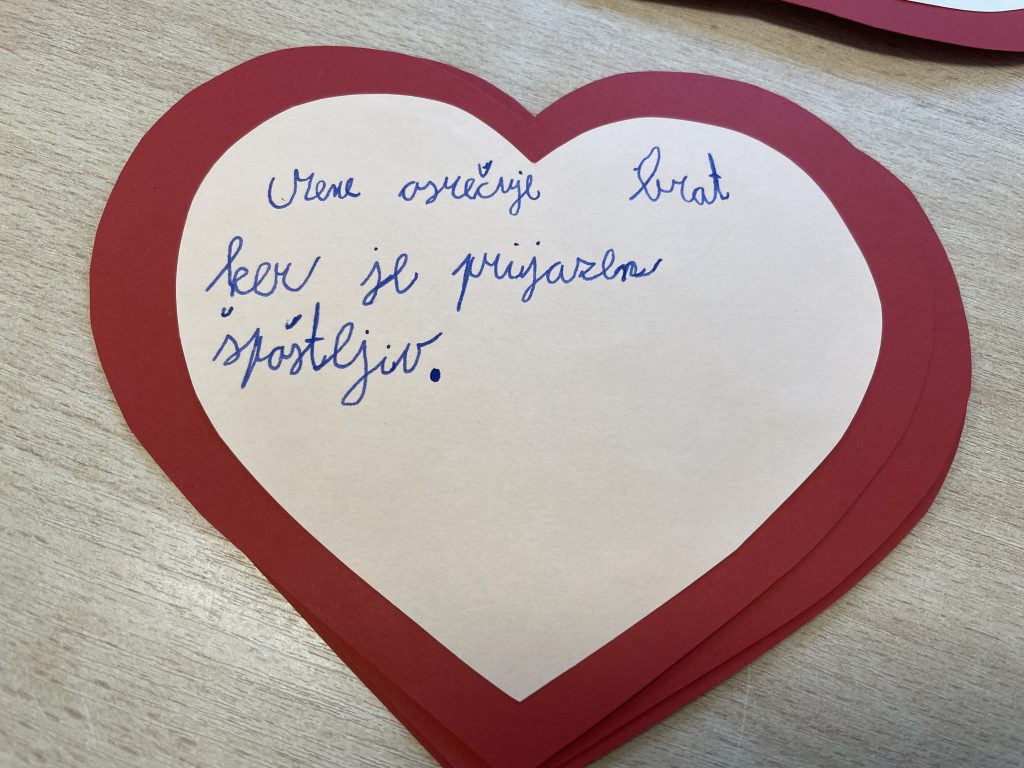 Mene osrečuje brat
ker je prijazen
špoštljiv.